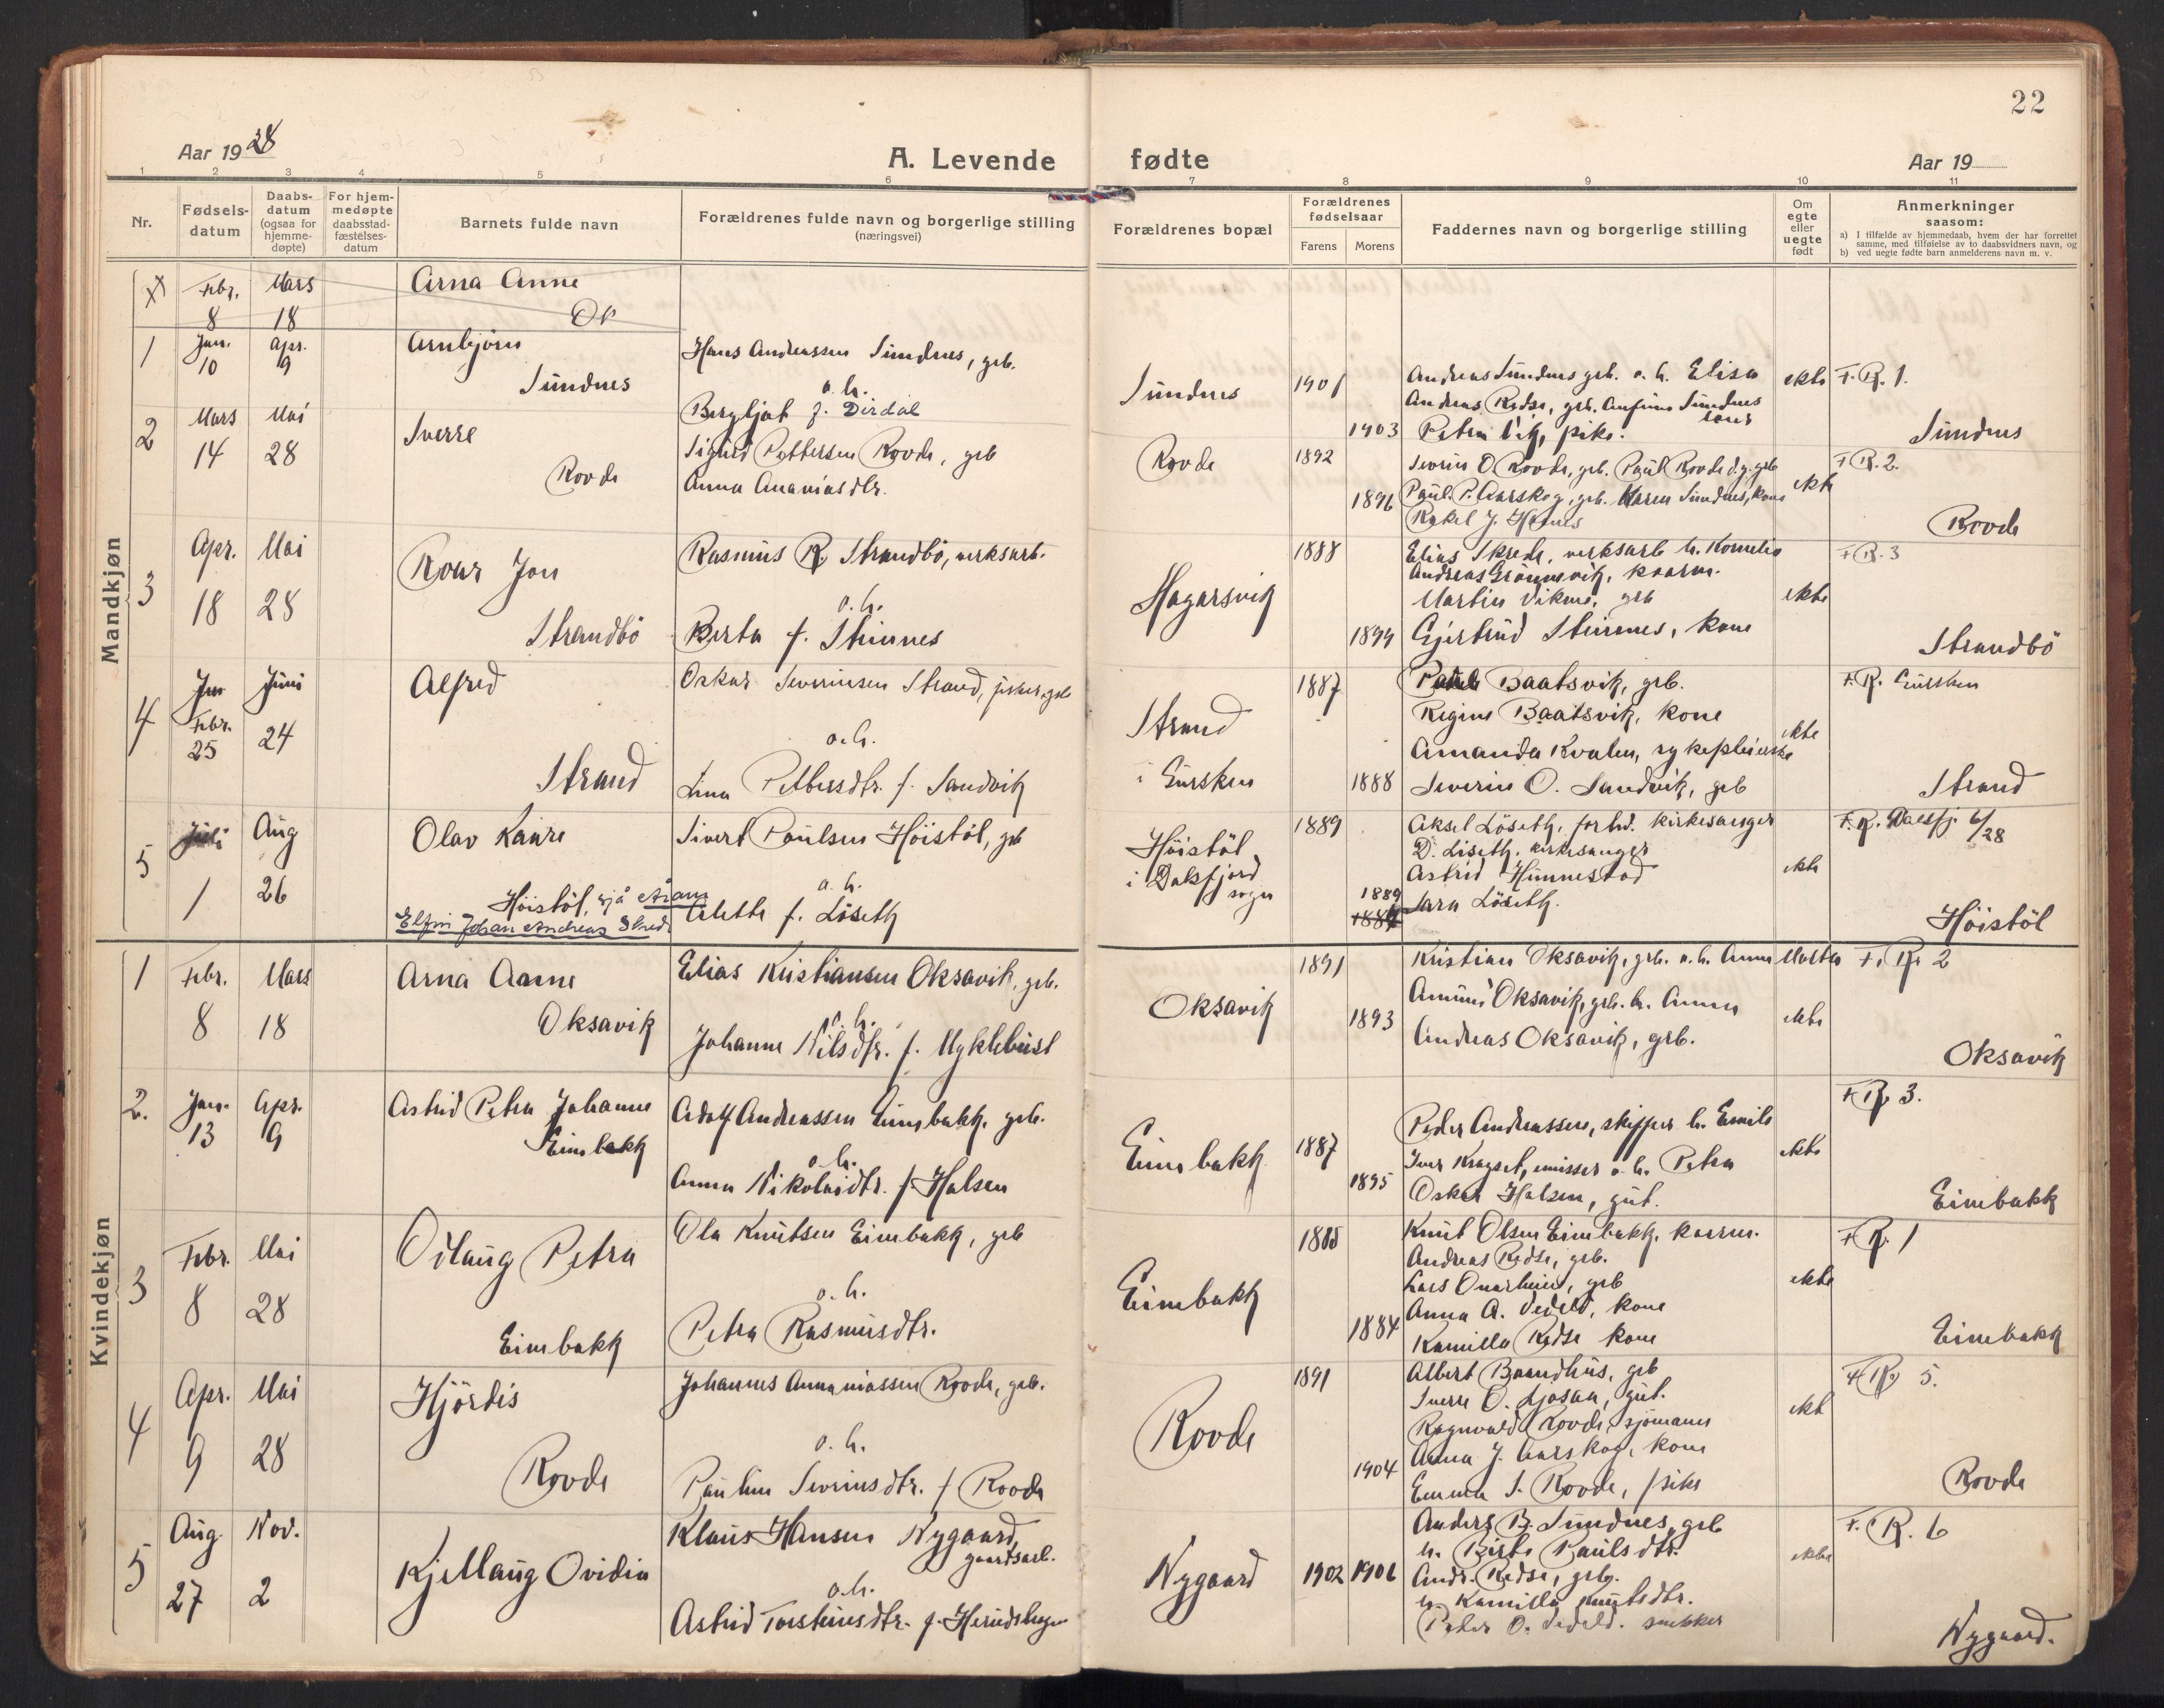 22
Aar 1928
A. Levende fødte
Aar 19
1 2 3 4 5 6 7 8 9 10 11
Nr.
Fødsels-
datum
Daabs-
datum
(ogsaa for
hjemme-
døpte)
For hjem-
medøpte
daabsstad-
fæstelses-
datum
Barnets fulde navn
Forældrenes fulde navn og borgerlige stilling
(næringsvei)
Forældrenes bopæl
Forældrenes
fødselsaar
Farens Morens
Faddernes navn og borgerlige stilling
Om
egte
eller
uegte
født
Anmerkninger
saasom:
a) I tilfælde av hjemmedaab, hvem der har forrettet
samme, med tilføielse av to daabsvidners navn, og
b) ved uegte fødte barn anmelderens navn m. v.
Mandkjøn
Febr. Mars Arna Anne
8 18 Ok
1 Jan. Apr. Arnbjørn
10 9
Sundnes
Hans Andreassen Sundnes, grb.
o. h.
Bergljot f. Dirdal
Sundnes 1901 1903
Andreas Sundnes grb. o. h. Elisa
Andreas Redse, grb. Sundnes
kone
pike.
ekte F. R. 1.
Sundnes
2 Mars Mai Sverre
14 28
Rovde
Sigurd Pettersen Rovde, grb
Anna Ananiasdtr.
Rovde 1892 1896
Severin O Rovde, grb. Paul Rovde d.y. grb
Paul P. Aarskog, grb. Karen Sundnes, kone
Rakel J.
ekte F R. 2.
Rovde
3 Apr. Mai Roar Jon
18 28
Strandbö
Rasmus R. Strandbö, verksarb.
o. h.
Berta f. Steinnes
Hagarsvik 1888 1899
Elias Skrede, verksarb h. Kornelia
Andreas Grönnevik, kaarm.
Martin Vikene, grb
Gjertrud Steinnes, kone
ekte F R. 3
Strandbö
4 Jan Juni Alfred
Febr.
25 24
Strand
Oskar Severinsen Strand, fisker, grb
o. h.
Lina Pettersdtr. f. Sandvik
Strand
i Gursken
1887 1888
Baatsvik, grb.
Regine Baatsvik, kone
Amanda Kvalen, sykepleierske
Severin O. Sandvik, grb
ekte F. R. Gursken
Strand
5 Juli Aug Olav Kaare
1 26
Höistöl, sjå
Elfin Johan Andreas
Sivert Paulsen Höistöl, grb
o. h.
Alette f. Löseth
Höistöl
i Dalsfjord
sogn
1889 1889
Aksel Löseth, forhv. kirkesanger
D. Löseth, kirkesanger
Astrid Hunnestad
Sara Löseth.
ekte F. R. Dalsfj. 6/28
Höistöl
Kvindekjøn
1 Febr. Mars Arna Anne
8 18 Oksavik
Elias Kristiansen Oksavik, grb.
o. h.
Johanne Nilsdtr. f. Myklebust
Oksavik 1891 1893
Kristian Oksavik, grb. o. h. Anne Marta
Oksavik, grb. h. Anna
Andreas Oksavik, grb.
ekte F. R. 2
Oksavik
2. Jan. Apr. Astrid Petra Johanne
13 9 Eimbakk
Adolf Andreassen Eimbakk, grb.
o. h.
Anna Nikolaidtr. f Halsen
Eimbakk 1887 1895
Peder Andreassen, skipper h. Emile
Iver Kragset, emissær o. h. Petra
Oskar Halsen, gut.
ekte F R 3.
Eimbakk
3 Febr. Mai Odlaug Petra
8 28
Eimbakk
Ola Knutsen Eimbakk, grb
o. h.
Petra Rasmusdtr.
Eimbakk 1885 1884
Knut Olsen Eimbakk, kaarm.
Andreas Redse, grb.
Lars Onarheim, grb
Anna A. Vedeld, kone
Kamilla Redse kone
ekte F R. 1
Eimbakk
4 Apr. Mai Hjördis
9 28
Rovde
Johannes Annaniassen Rovde, grb.
o. h.
Pauline Severinsdtr. f Rovde
Rovde 1891 1904
Albert Brandhus, grb
Sverre O. Ljosaa, gut.
Ragnvald Rovde, sjömann
Anna J. Aarskog, kone
Emma S. Rovde, pike
ekt F R. 5.
Rovde
5 Aug Nov. Kjellaug Ovidia
27 2
Klaus Hansen Nygaard,
gaardsarb.
o. h.
Astrid Torsteinsdtr. f.
Nygaard 1902 1906
Anders B. Sundnes, grb
h. Birte Paulsdtr.
Andr. Redse, grb.
h. Kamilla Knutsdtr.
Peder O. Vedeld. snekker
ekte F. R. 6
Nygaard.